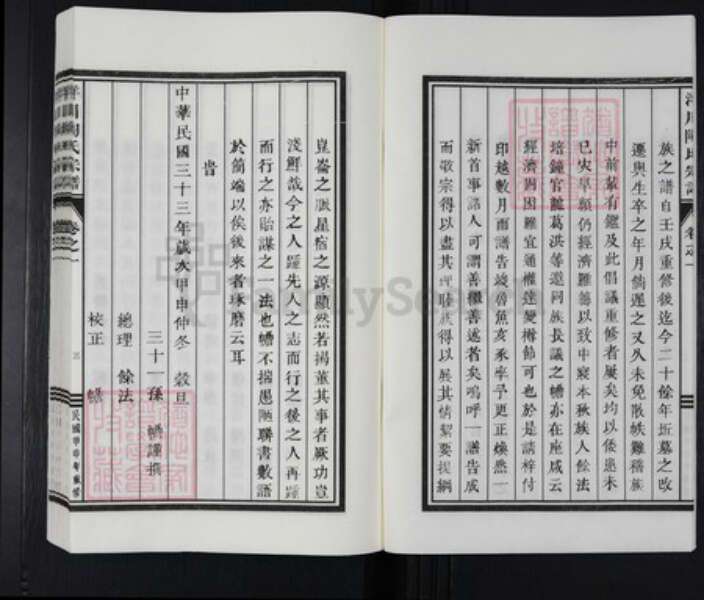 族之譜自壬戌重修後迄今二十餘年坵墓之改
遷與生卒之年月倘遲之又久未免散帙難稽族
中前輩有鑑及此倡議重修者屢矣均以倭患未
已灾旱頻仍經濟難籌以致中寢本秋族人餘法
培鐘官龍葛洪等邀同族長議之蟠亦在座咸云
經濟困難宜通權達變樽節可也於是請梓付
印越數月而譜告竣魯魚亥豕率予更正煥然一
新首事諸人可謂善繼善述者矣嗚呼一譜告成
而敬宗得以盡其理睦族得以展其情絜要提綱
崑崙之派星宿之源顯然若揭董其事者厥功豈
淺鮮哉今之人踵先人之志而行之後之人再踵
而行之亦貽謀之一法也蟠不揣愚陋聯書數語
於簡端以俟後來者琢磨云耳
旹
中華民國三十三年歲次甲申仲冬 穀旦
三十一孫 蟠謹撰
總理 餘法
校正 蟠
卷之一
三